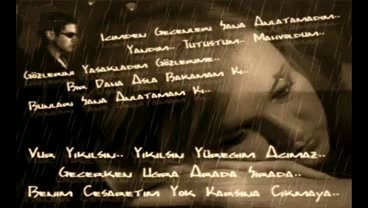 Icimden Gecenleri Sana Anlatamadim..
Yandim.. Tutustum.. Mahvoldum..
Gözlerini Yasakladim Gözlerime..
Bir Daha Asla Bakamam Ki..
Bunlari Sana Anlatamam Ki..
Vur Yikilsin.. Yikilsin Yüregim Acimaz..
Gecerken Ugra Arada Sirada..
Benim Cesaretim Yok Karsina Cikmaya..